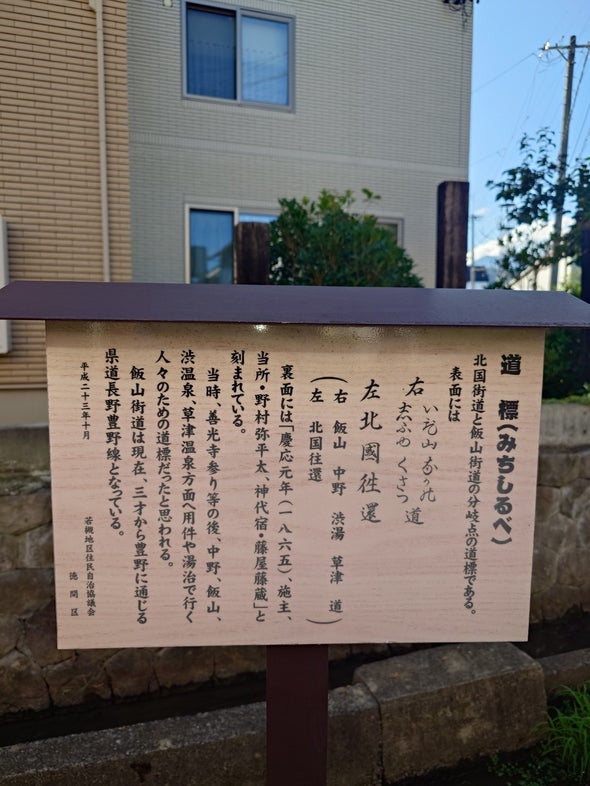 道 標(みちしるべ)
北国街道と飯山街道の分岐点の道標である。
表面には
右 いゝ山 なか能 道
志ふゆ くさつ
左 北國徃還
(右 飯山 中野 渋湯 草津 道)
(左 北国往還)
裏面には「慶応元年(一八六五)、施主、
当所・野村弥平太、神代宿・藤屋藤蔵」と
刻まれている。
当時、善光寺参り等の後、中野、飯山、
渋温泉、草津温泉方面へ用件や湯治で行く
人々のための道標だったと思われる。
飯山街道は現在、三才から豊野に通じる
県道長野豊野線となっている。
平成二十三年十月
若槻地区住民自治協議会
徳間区